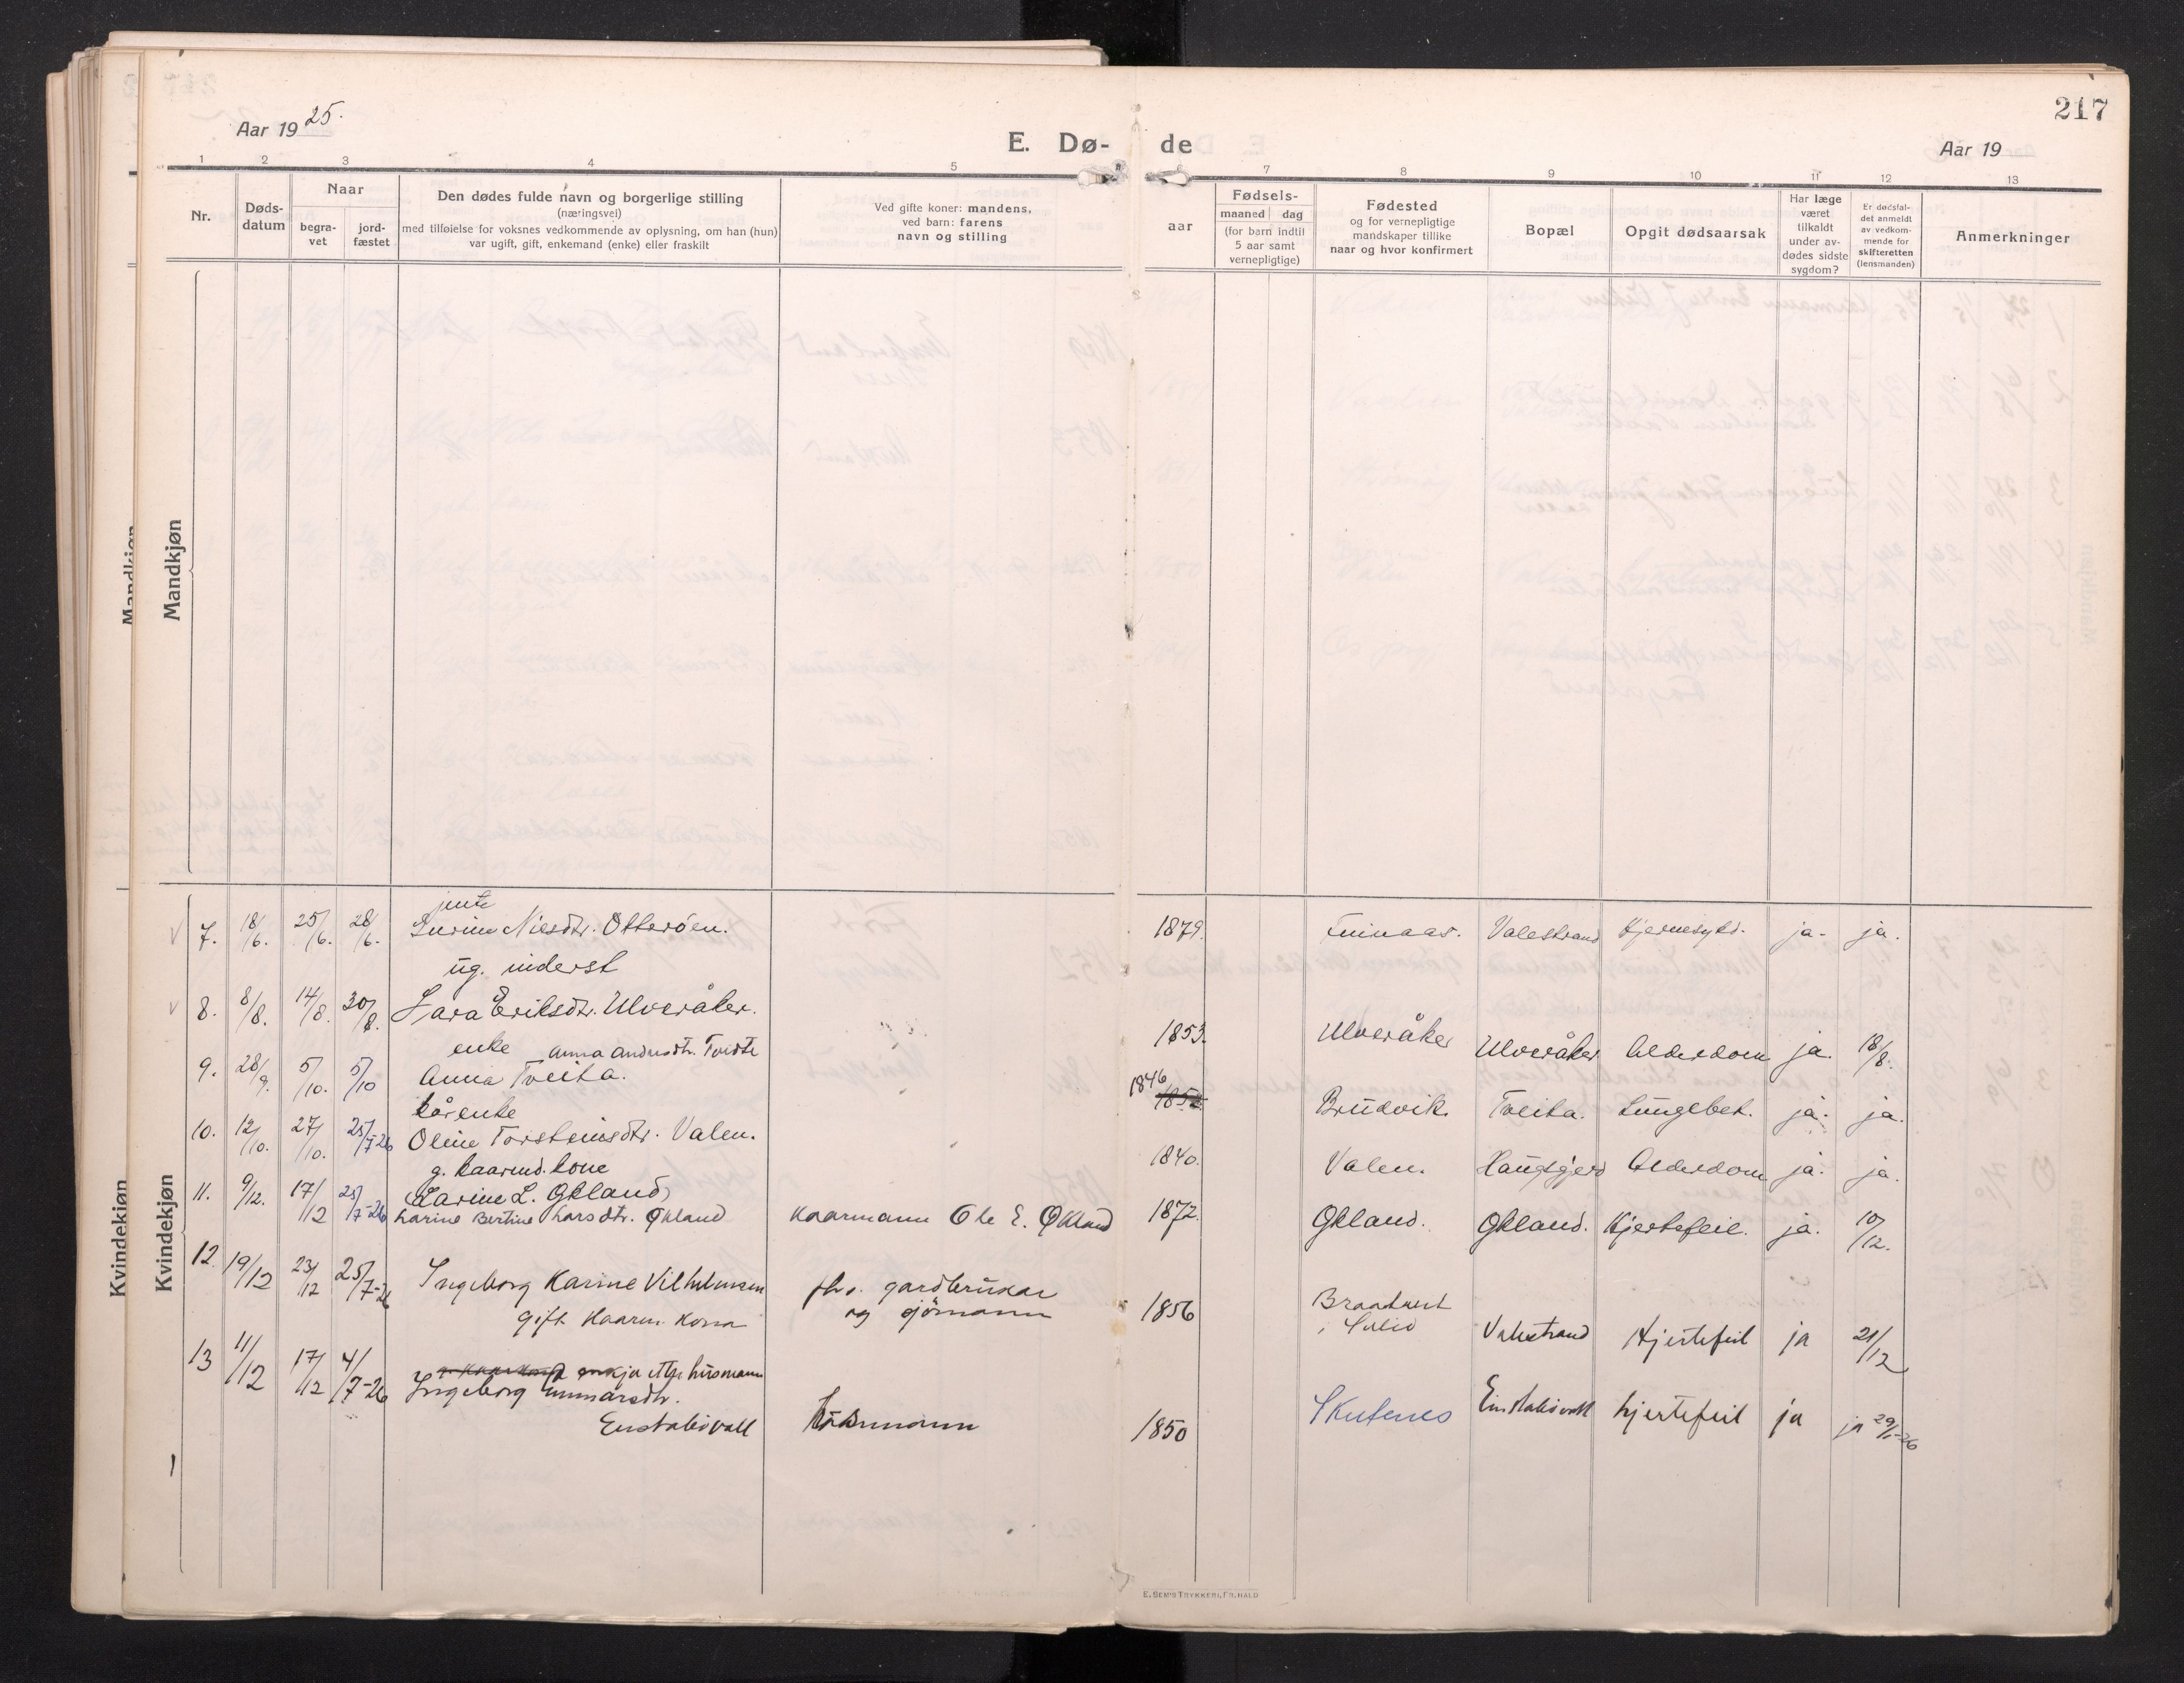 217
Aar 1925.
E. Dø-de
Aar 19
1 2 3 4 5 7 8 9 10 11 12 13
Nr.
Døds-
datum
Naar
begra-
vet
jord-
fæstet
Den dødes fulde navn og borgerlige stilling
(næringsvei)
med tilføielse for voksnes vedkommende av oplysning, om han (hun)
var ugift, gift, enkemand (enke) eller fraskilt
Ved gifte koner: mandens,
ved barn: farens
navn og stilling
aar
Fødsels-
maaned dag
(for barn indtil
5 aar samt
vernepligtige)
Fødested
og for vernepligtige
mandskaper tillike
naar og hvor konfirmert
Bopæl
Opgit dødsaarsak
Har læge
været
tilkaldt
under av-
dødes sidste
sygdom?
Er dødsfal-
det anmeldt
av vedkom-
mende for
skifteretten
(lensmanden)
Anmerkninger
Mandkjøn
Mandkjøn
Kvindekjøn
Kvindekjøn
jente
7. 18/6. 25/6. 28/6. Otterøen. 1879. Valestrand ja. ja.
ug. inderst
8. 8/8. 14/8. 30/8. Eriksdtr. Ulveråker. 1853. Ulveråker Ulveråker Alderdom ja. 18/8.
enke
Anna Andersdtr. Tveite
9. 28/9. 5/10. 5/10 Anna Tveita. 1846 1852 Brudvik. Tveita. Lungebet. ja. ja.
kårenke
10. 12/10. 27/10. 25/7-26 Oline Torsteinsdtr. Valen. 1840. Valen. Haugsgjerd Alderdom ja. ja.
g. kaarmd. kone
11. 9/12. 17/12 25/7-26 Larine L. Økland 1872. Økland. Økland. Hjertefeil. ja. 10/12.
Larine Bertine Larsdtr. Økland Kaarmann Ole E. Økland
12. 19/12 23/12 25/7-26 Ingeborg Karine Vilhelmsen fhv. gardbrukar 1856 Valestrand Hjertefeil ja 21/12
gift Kaarm. Kona og sjømann
13 11/12 17/12 4/7-26 enkja etter husmann
Ingeborg Gunnarsdtr.
Enstabøvoll 1850 Skutenes Enstabøvoll hjertefeil ja ja 29/1-26
E. Sem's Trykkeri, Fr.hald